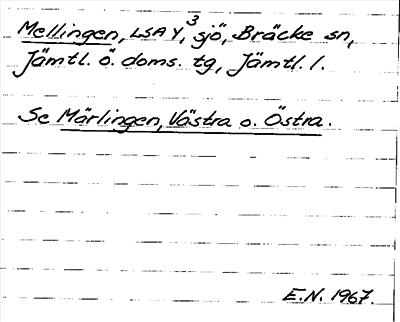 Mellingen, LSA Y,³ sjö, Bräcke sn,
Jämtl. ö. doms. tg, Jämtl. l.
Se Märlingen, Västra o. Östra.
E.N. 1967.